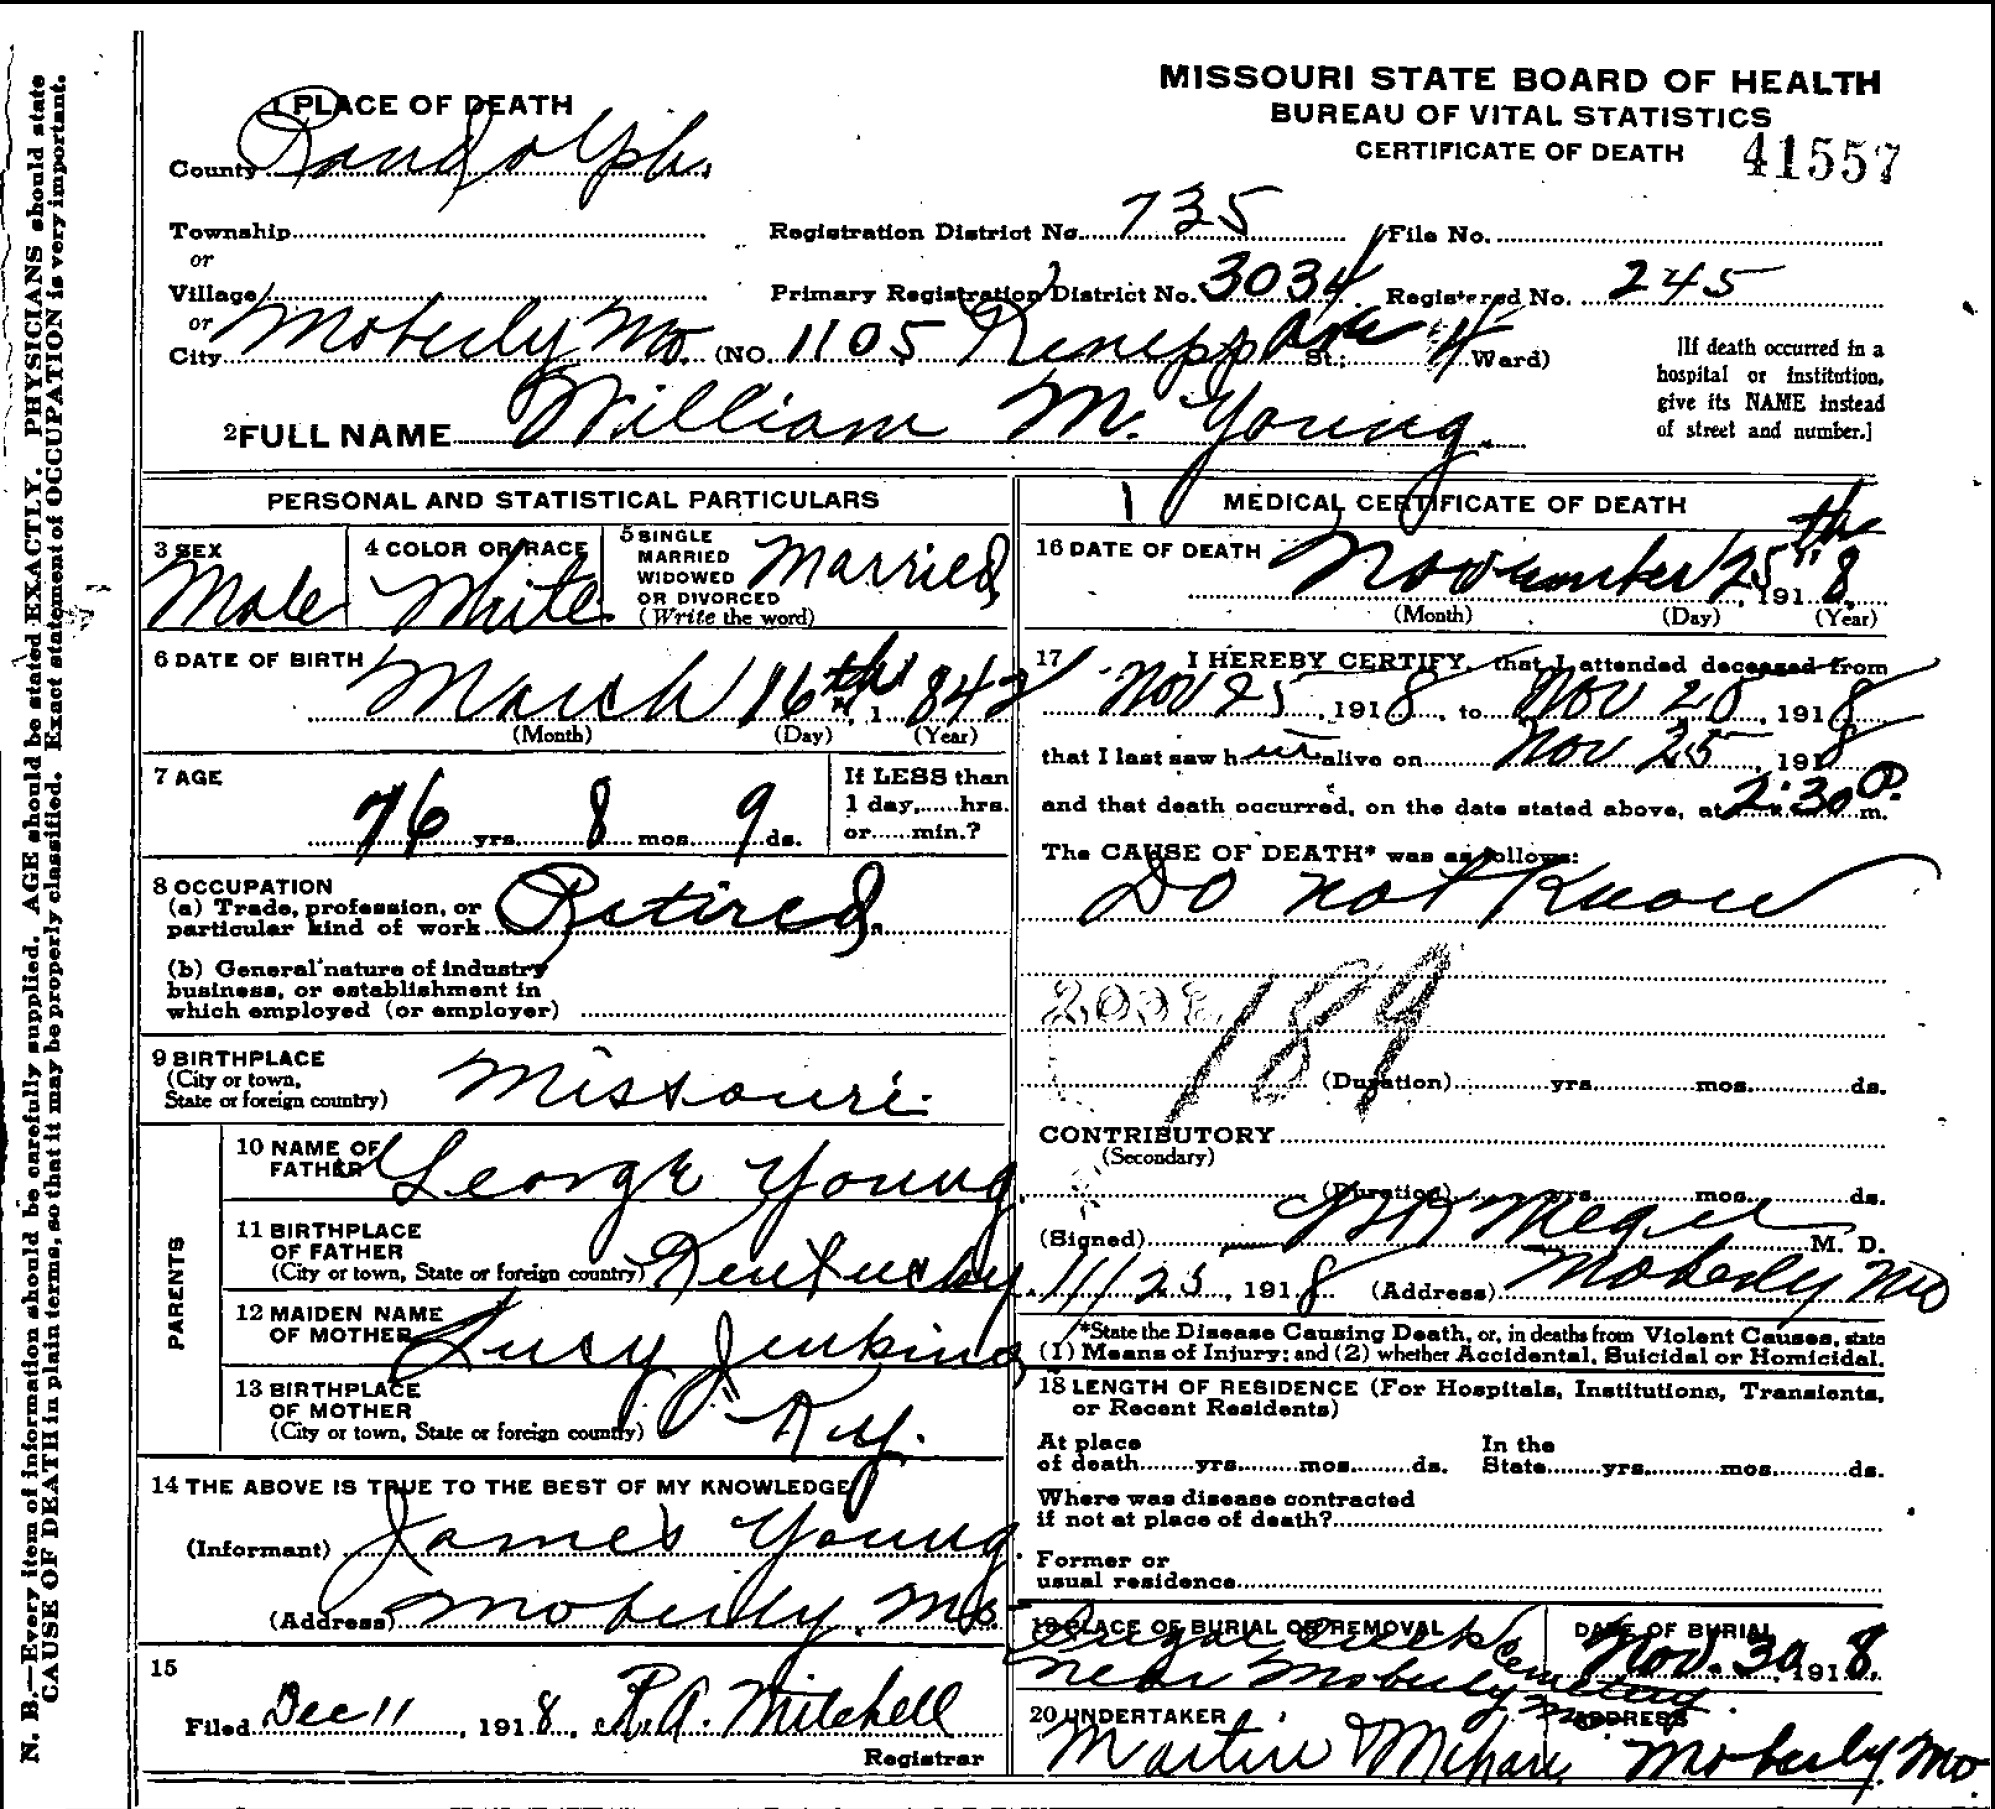 N. B.—Every item of information should be carefully supplied. AGE should be stated EXACTLY. PHYSICIANS should state
CAUSE OF DEATH in plain terms, so that it may be properly classified. Exact statement of OCCUPATION is very important.
MISSOURI STATE BOARD OF HEALTH
BUREAU OF VITAL STATISTICS
CERTIFICATE OF DEATH 41557
1 PLACE OF DEATH
County Randolph
Township
or
Village
or
City Moberly Mo. (NO. 1105 Ave St.; 4 Ward)
Registration District No. 735 File No.
Primary Registration District No. 3034 Registered No. 245
[If death occurred in a
hospital or institution,
give its NAME instead
of street and number.]
2 FULL NAME William M. Young
PERSONAL AND STATISTICAL PARTICULARS
3 SEX
Male
4 COLOR OR RACE
White
5 SINGLE
MARRIED
WIDOWED
OR DIVORCED
(Write the word)
Married
6 DATE OF BIRTH
March 16th, 1842
(Month) (Day) (Year)
7 AGE
76 yrs. 8 mos. 9 ds.
If LESS than
1 day,......hrs.
or......min.?
8 OCCUPATION
(a) Trade, profession, or
particular kind of work Retired
(b) General nature of industry
business, or establishment in
which employed (or employer)
9 BIRTHPLACE
(City or town,
State or foreign country) Missouri
PARENTS
10 NAME OF
FATHER George Young
11 BIRTHPLACE
OF FATHER
(City or town, State or foreign country) Kentucky
12 MAIDEN NAME
OF MOTHER Lucy Jenkins
13 BIRTHPLACE
OF MOTHER
(City or town, State or foreign country) Ky.
14 THE ABOVE IS TRUE TO THE BEST OF MY KNOWLEDGE
(Informant) James Young
(Address) Moberly. Mo.
15
Filed Dec 11, 1918, R.A. Mitchell
Registrar
1 MEDICAL CERTIFICATE OF DEATH
16 DATE OF DEATH November 25th, 1918
(Month) (Day) (Year)
17 I HEREBY CERTIFY, that I attended deceased from
Nov 25, 1918, to Nov 25, 1918
that I last saw him alive on Nov 25, 1918
and that death occurred, on the date stated above, at 2:30 P. m.
The CAUSE OF DEATH* was as follows:
Do not Know
189
(Duration) yrs. mos. ds.
CONTRIBUTORY
(Secondary)
(Duration) yrs. mos. ds.
(Signed) M. D.
11/25, 1918 (Address) Moberly Mo
*State the Disease Causing Death, or, in deaths from Violent Causes, state
(1) Means of Injury; and (2) whether Accidental, Suicidal or Homicidal.
18 LENGTH OF RESIDENCE (For Hospitals, Institutions, Transients,
or Recent Residents)
At place
of death yrs. mos. ds.
In the
State yrs. mos. ds.
Where was disease contracted
if not at place of death?
Former or
usual residence
19 PLACE OF BURIAL OR REMOVAL
Sugar Creek Cemetery
near Moberly Mo
DATE OF BURIAL
Nov. 30, 1918.
20 UNDERTAKER
Martin &
ADDRESS
Moberly. Mo